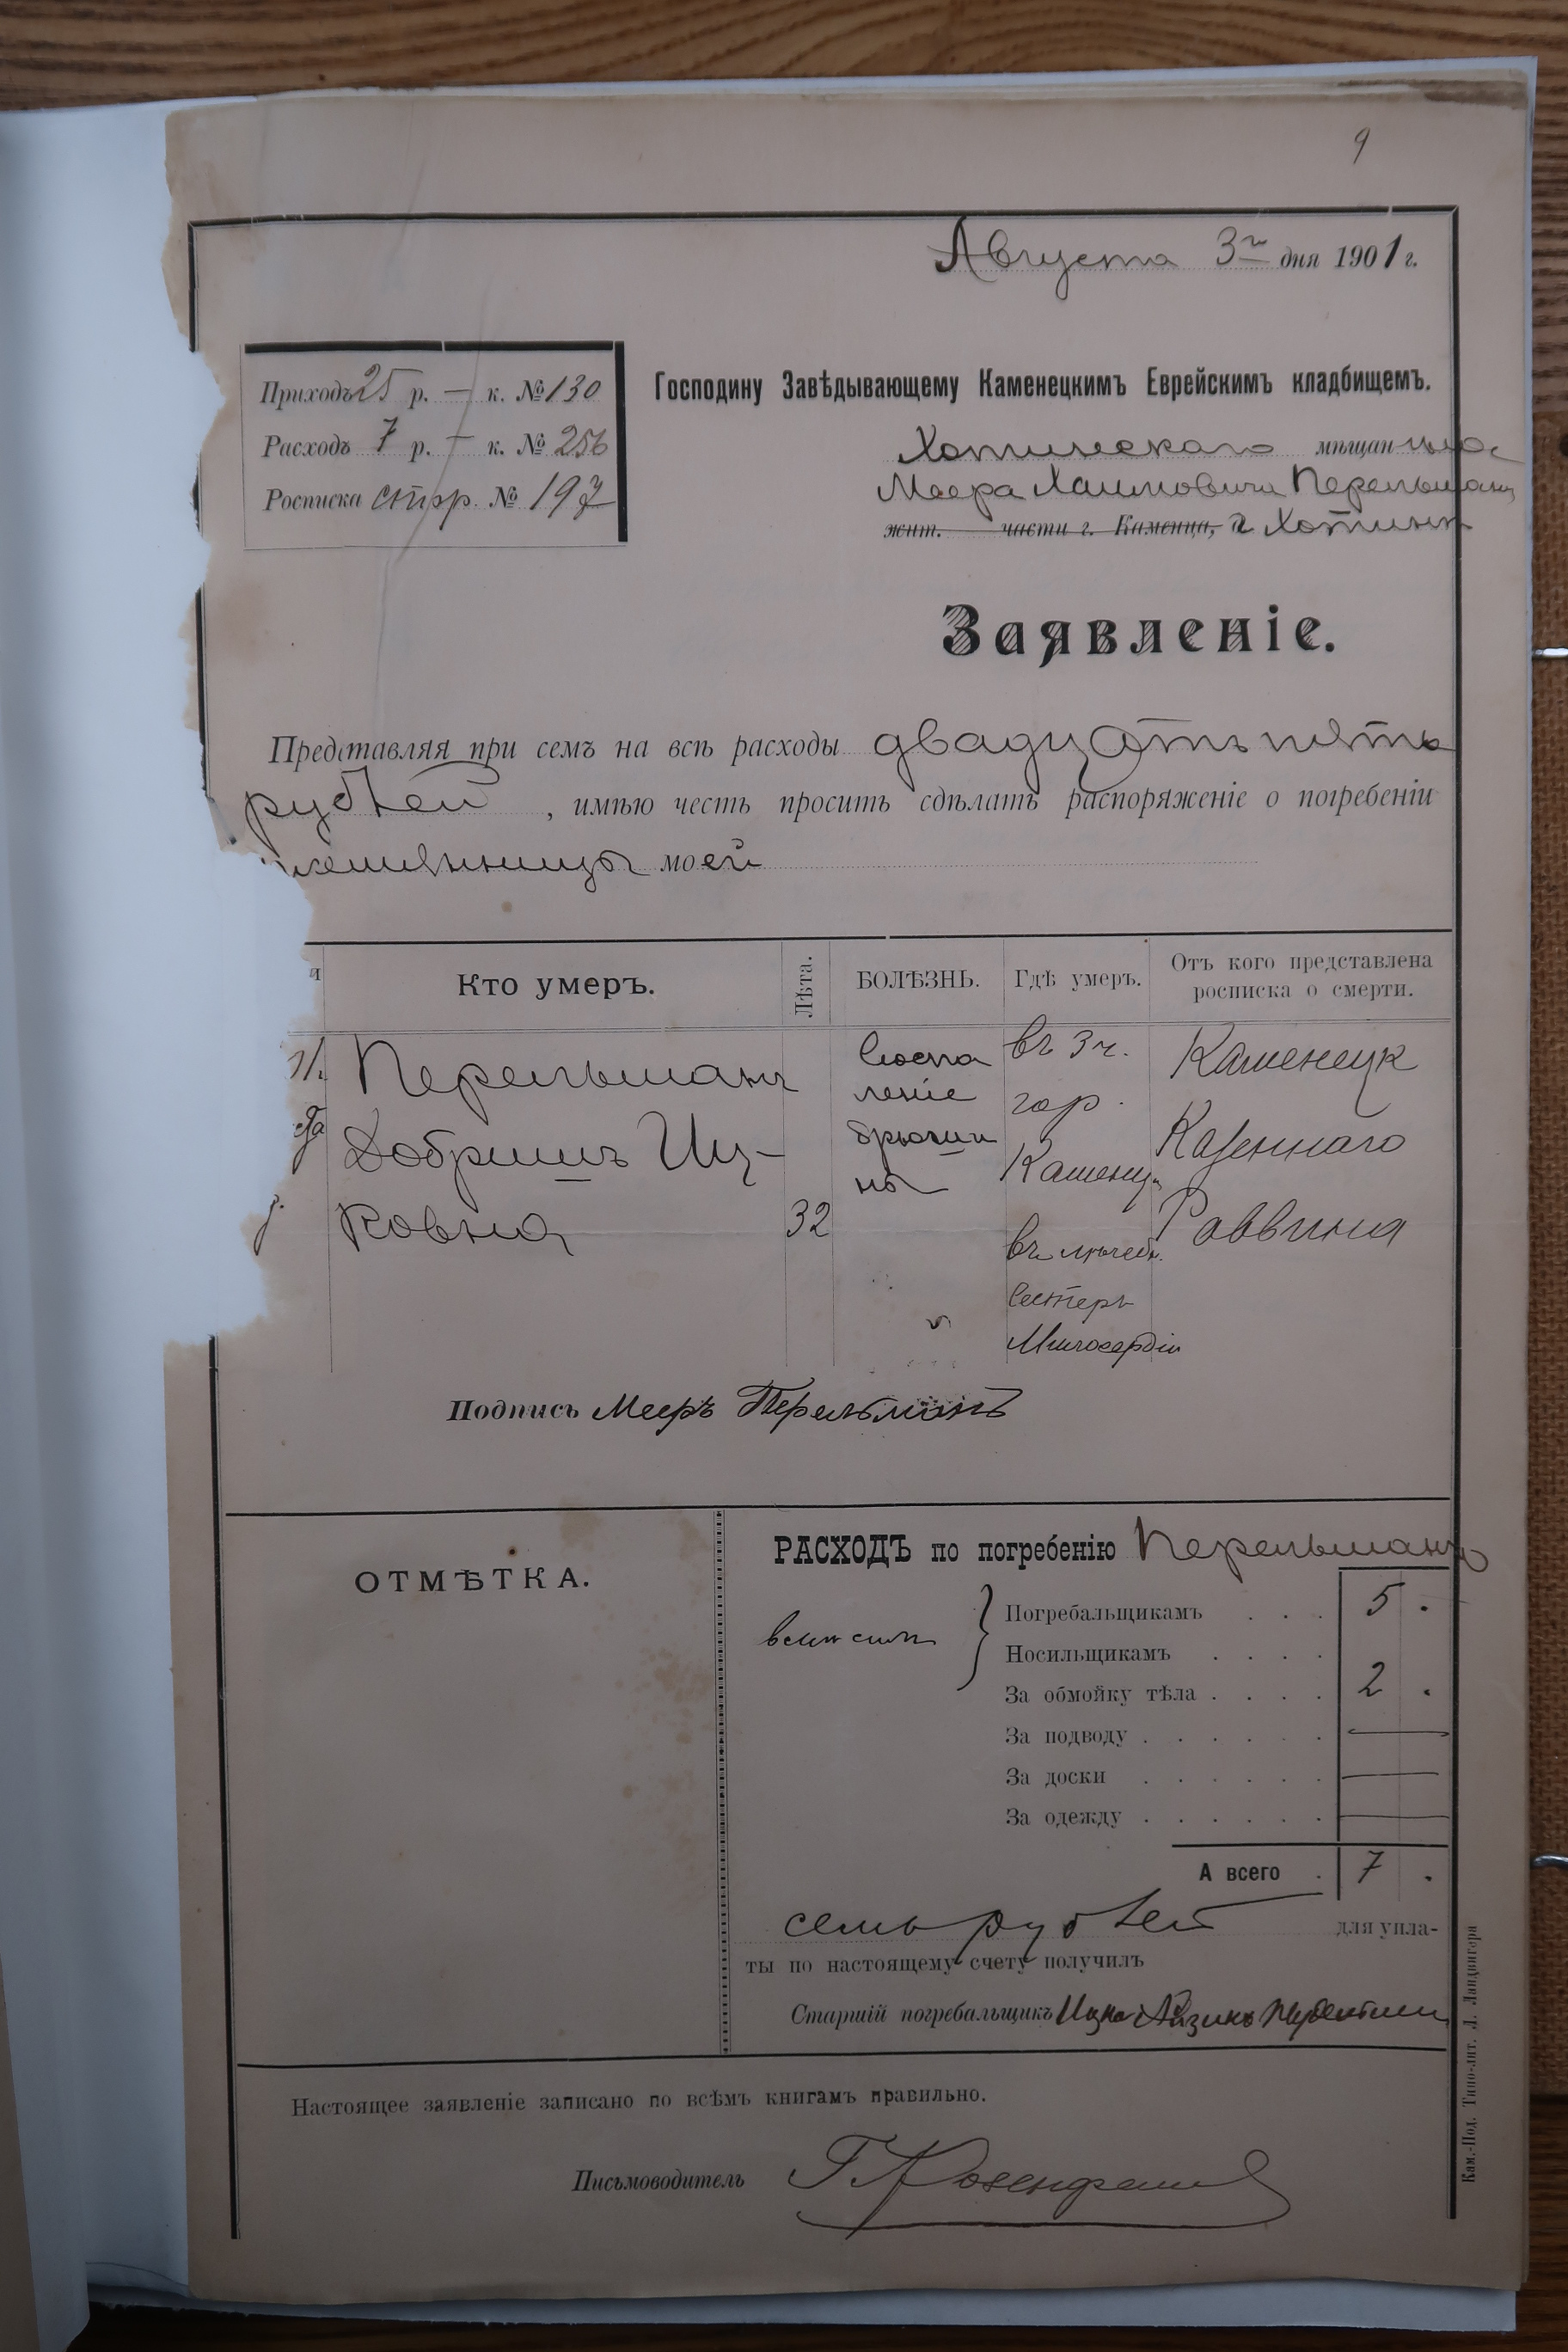 9
Августа 3го дня 1901 г.
Приходъ 25 р. — к. № 130
Расходъ 7 р. — к. № 256
Росписка стр. № 197
Господину Завѣдывающему Каменецкимъ Еврейскимъ кладбищемъ.
Хотинскаго мѣщан
Меера Хаимовича Перельмана
жит. части г. Каменца, г Хотинѣ
Заявленіе.
Представляя при семъ на всѣ расходы двадцать пять
рублей, имѣю честь просить сдѣлать распоряженіе о погребеніи
племянницы моей
я Кто умеръ. Лѣта. БОЛѢЗНЬ. Гдѣ умеръ. Отъ кого представлена
росписка о смерти.
Перельманъ Воспа въ 3 ч. Каменецк
леніе гор.
Добришъ Иц- брюши Каменца Казеннаго
ны
Ковна 32 Раввина
въ лѣчебн.
Сестеръ
Милосердія
Подпись Мееръ Перельманъ
ОТМѢТКА.
РАСХОДЪ по погребенію Перельманъ
Погребальщикамъ . . . 5 .
Носильщикамъ . . . .
За обмойку тѣла . . . . 2 .
За подводу . . . . . . —
За доски . . . . . . —
За одежду . . . . . . —
А всего . 7 .
семь рублей для упла-
ты по настоящему счету получилъ
Старшій погребальщикъ Ицко Айзикъ
Настоящее заявленіе записано по всѣмъ книгамъ правильно.
Письмоводитель
Кам.-Под. Типо-лит. Л. Ландвигера